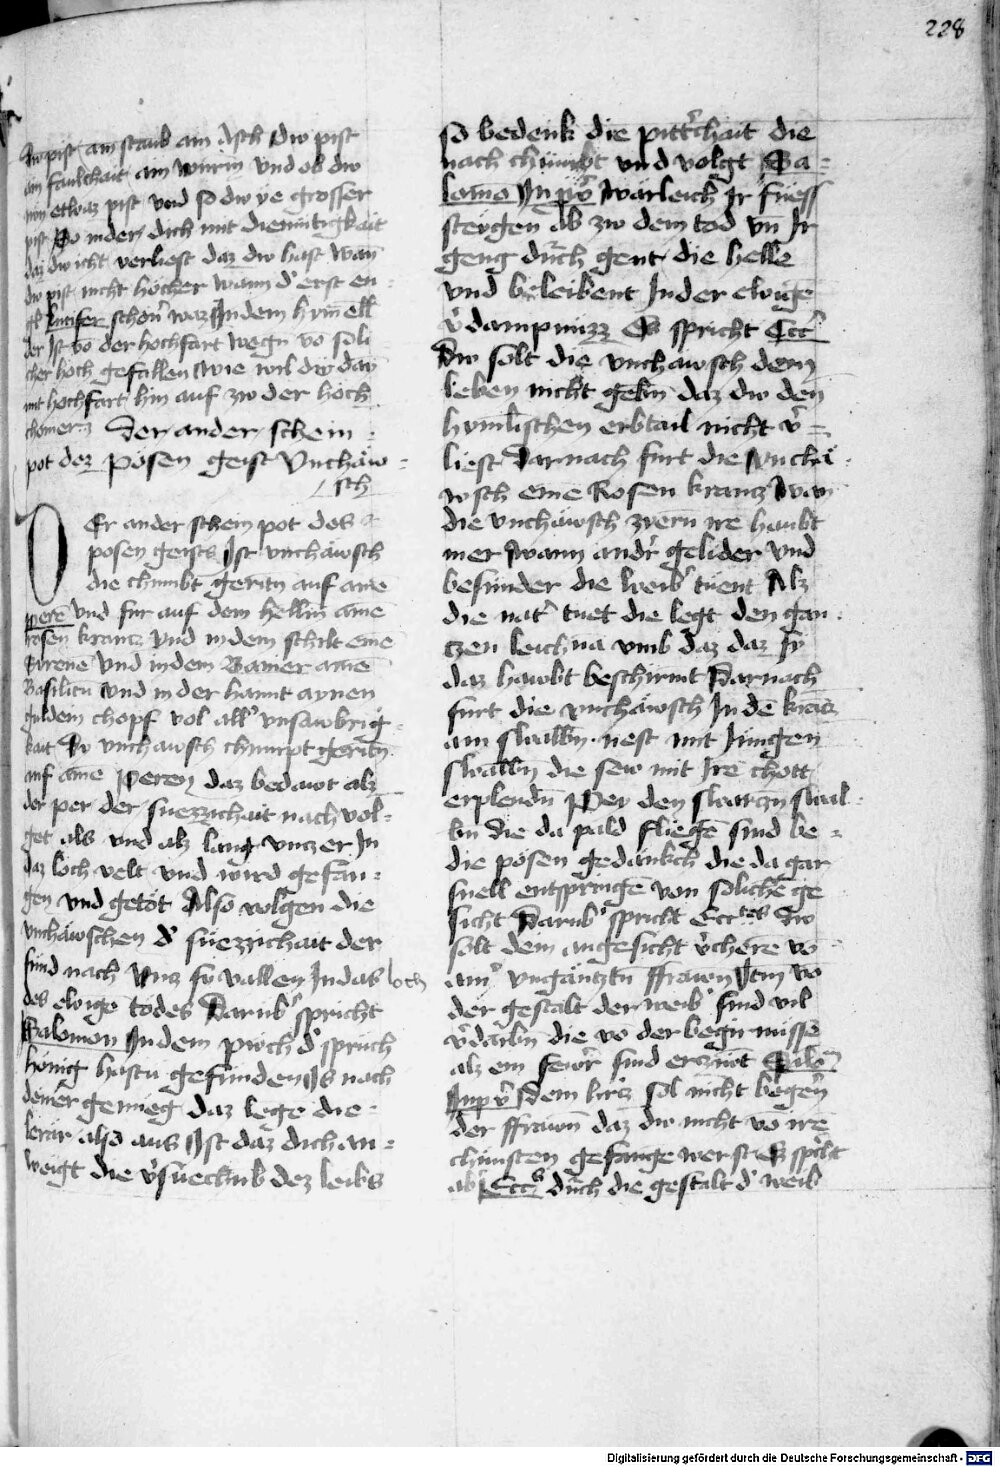 228
Dw pist am staub am Asch Dw pist
am faulchait am wurm vnd ob dw
nw etwaz pist vnd so dw ye grosser
pist So inder dich mit diemutigkait
daz dw icht verliest daz dw hast wan̄
dw pist nicht höcher wann d' erst en-
gl lucifer schon' waz Indem hym̄ell
der Ist vo der hochfart wegn vo soli
cher höch gefallen wie wil dw dan̄
mit hochfart hin auf zw der höch
chomen
Der ander schem
pot dez pösen geist Vnchäw-
sch
Er ander schem pot des
posen geists Ist vnchäwsch
die chumbt geritn auf ame
pere vnd fur auf dem hellm ame
rosen krancz vnd indem schilt eine
Sirene vnd indem Banier ame
Basilicu vnd in der hannt aynen
guldem chopf vol all' vnsawbrig
kait Dw vnchawsch chumpt geritn
auf ame peren daz bedawt alz
der per der suezzichait nachvol-
get als vnd alz lang vncz er In
daz loch velt vnd wird gefan-
gen vnd getöt Also volgen die
vnchäwschen d' süezzichait der
sünd nach vncz sy vallen Indas loch
des ewigē todes Darub' spricht
Salomon Indem pwch d' sprüch
hönig hastu gefunden Is nach
deiner genueg daz lege die
lerär also aus Ist daz dich an-
weigt die v'süechnb dez leibs
so bedenk die pitt'chait die
nach chumbt vnd volgt Sa-
lomo Inpv̄ warleich Ir füess
steigen ab zw dem tod vn̄ Ir
geng durch gent die helle
vnd beleibent Inder ewigē
v'dampnüzz Es spricht Ecc'
Dw solt die vnchäwsch dem
leben nicht gebn daz dw den
hymlischen erbtail nicht v'-
liest Darnach furt die vnchä-
wsch eine Rosen krancz wan̄
die vnchäwsch zyern ire haubt
mer wann and'r gelider vnd
besunder die weib' tüent Alz
die nat' tuet die legt den gan-
tzen leichna vmb daz daz sy
daz hawbt beschirmt Darnach
furt die vnchäwsch In de krācz
am swalbn nest mit Iungen
swalbn die sew mit Ire chott
erplendn̄ Per den swarczn swal
bn die da pald fliegē sind be-
die pösen gedänkch die da gar
snell entspringē von solichē ge
sicht Darub' spricht Ecctes Dw
solt dem angesicht v'chere vo
am' vngäntztn ffrawn Itm vo
der gestalt der weib' sind vil
v'darbn̄ die vo der begir missē
alz em fewr' sind erzünt Salo
Inpv̄ dem hircz sol nicht begern
der ffrawn daz dw nicht vo ire
chunsten gefange werst Es spicht
ab' Eccs durch die gestalt d' weib
Digitalisierung gefördert durch die Deutsche Forschungsgemeinschaft - DFG